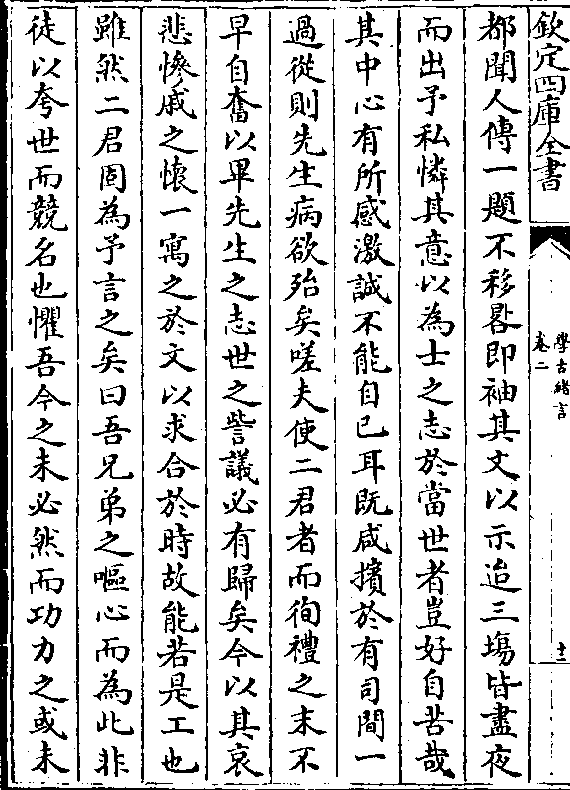 欽定四庫全書
學古緒言
卷二
十二
都聞人傳一題不移晷即袖其文以示迨三塲皆盡夜
而出予私憐其意以為士之志於當世者豈好自苦哉
其中心有所感激誠不能自已耳既咸擯於有司間一
過從則先生病欲殆矣嗟夫使二君者而徇禮之末不
早自奮以畢先生之志世之訾議必有歸矣今以其哀
悲慘戚之懷一寓之於文以求合於時故能若是工也
雖然二君固為予言之矣曰吾兄弟之嘔心而為此非
徒以夸世而競名也懼吾今之未必然而功力之或未